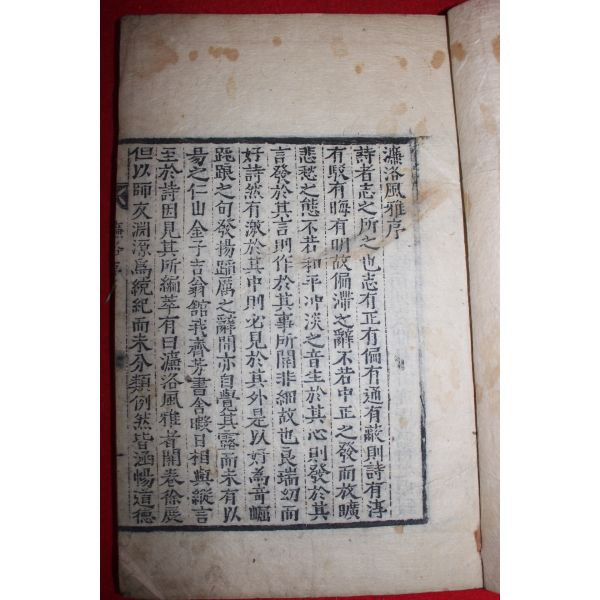 濂洛風雅序
詩者志之所之也志有正有偏有通有蔽則詩有淳
有駁有晦有明故偏滯之辭不若中正之發而放曠
悲愁之態不若和平冲淡之音生於其心則發於其
言發於其言則作於其事所關非細故也良瑞幼而
好詩然有激於其中則必見於其外是以好爲奇崛
跪踉之句發揚蹈厲之辭間亦自覺其露而未有以
易之仁山金子吉翁館我齊芳書舍暇日相與縱言
至於詩因見其所編萃有曰濂洛風雅者開卷徐展
但以師友淵源爲統紀而未分類例然皆涵暢道德